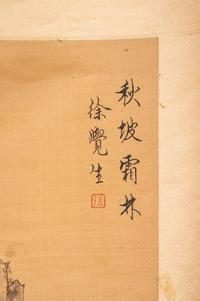 秋坡霜林
徐覺生